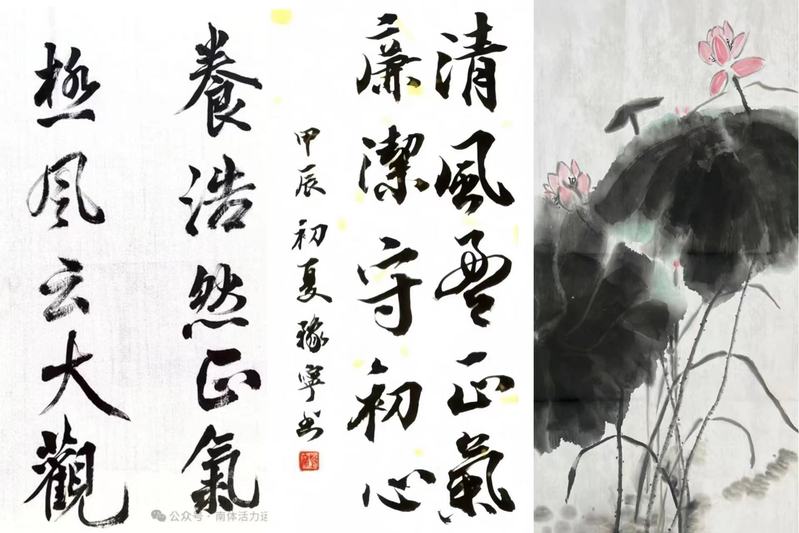 養浩然正氣
極风云大觀
清風盈正氣
廉潔守初心
甲辰初夏寧书
公众号·南体活力运